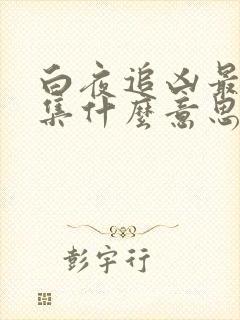 白夜追凶最
集什麼意思
彭宇行